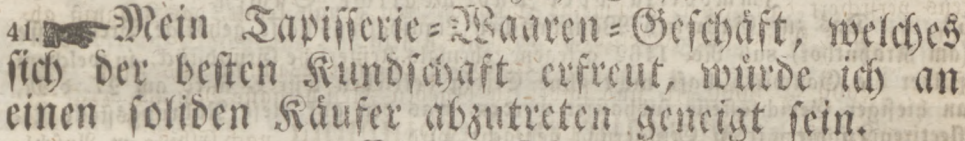 41. ☛ Mein Tapisserie-Waaren-Geschäft, welches
sich der besten Kundschaft erfreut, würde ich an
einen soliden Käufer abzutreten geneigt sein.